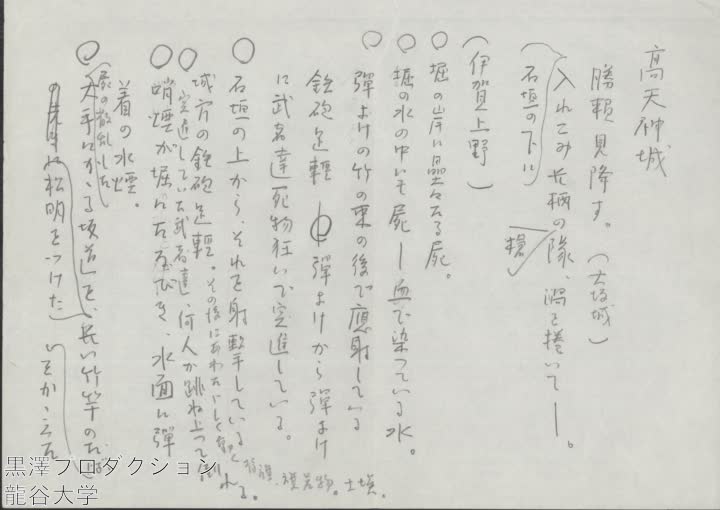 高天神城
勝頼見降す。(大坂城)
入れこみ 長柄の隊、渦を捲いて―。
槍
(石垣の下に
(伊賀上野)
○堀の岸に、累々たる屍。
○堀の水の中にも屍―血で染っている水。
○弾よけの竹の束の後で應射している
鉄砲足軽 弾よけから弾よけ
に武者達死物狂いで突進している。
○石垣の上から、それを射撃している
城方の鉄砲足軽。その後にあわただしく動く 旗、 土埃。
○突進していた武者達、何人か跳ね上って倒れる。
○硝煙が堀にたなびき、水面に弾
着の水煙。
(屍の散乱した
○大手にかゝる坂道を、長い竹竿の
に松明をつけた